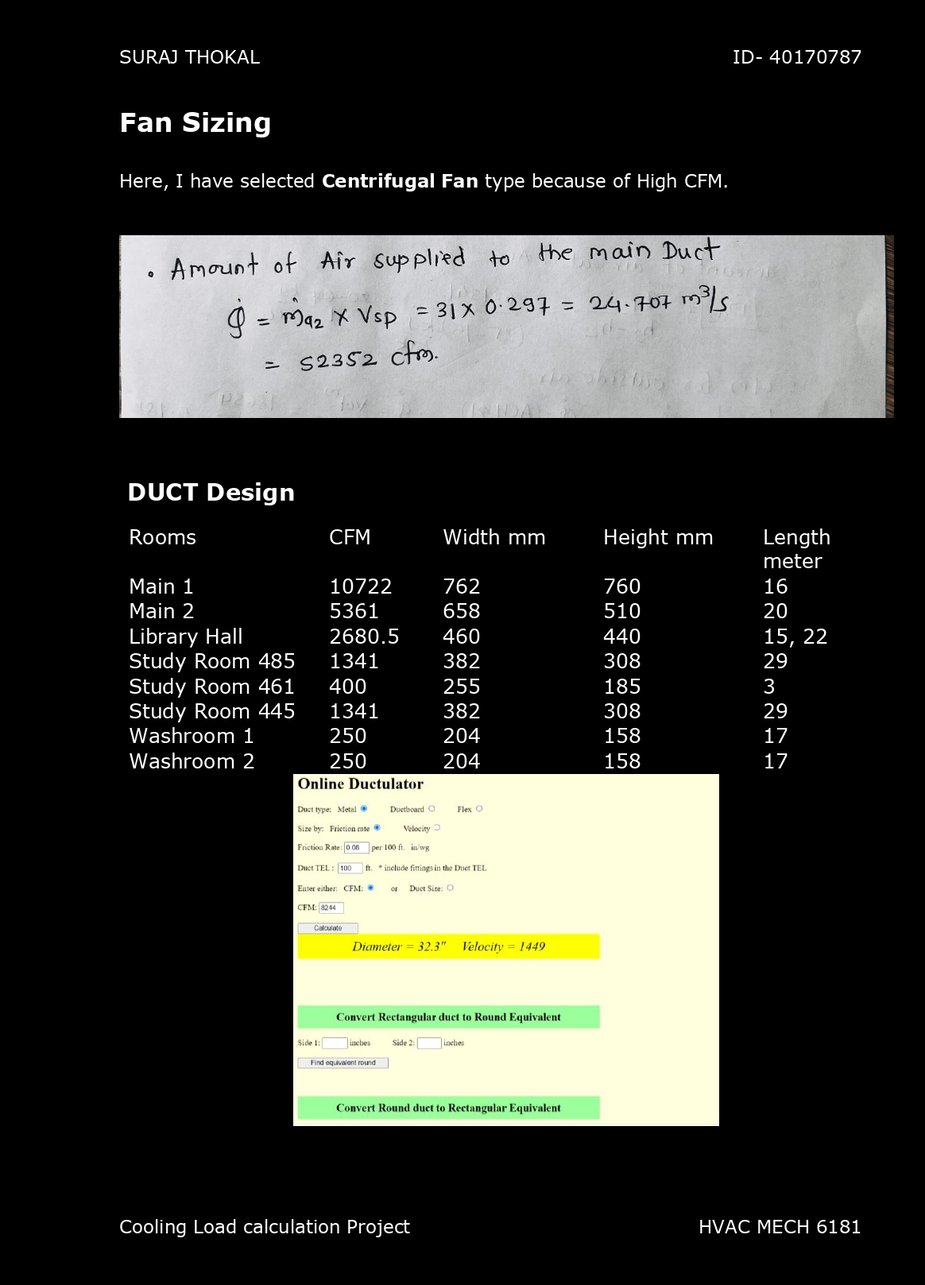 SURAJ THOKAL ID- 40170787
Fan Sizing
Here, I have selected Centrifugal Fan type because of High CFM.
• Amount of Air supplied to the main Duct
Q̇ = ṁa2 X Vsp = 31 X 0.297 = 24.707 m³/s
= 52352 cfm.
DUCT Design
Rooms CFM Width mm Height mm Length meter
Main 1 10722 762 760 16
Main 2 5361 658 510 20
Library Hall 2680.5 460 440 15, 22
Study Room 485 1341 382 308 29
Study Room 461 400 255 185 3
Study Room 445 1341 382 308 29
Washroom 1 250 204 158 17
Washroom 2 250 204 158 17
Online Ductulator
Duct type: Metal Ductboard Flex
Size by: Friction rate Velocity
Friction Rate: 0.08 per 100 ft. in/wg
Duct TEL : 100 ft. * include fittings in the Duct TEL
Enter either: CFM: or Duct Size:
CFM: 8244
Calculate
Diameter = 32.3" Velocity = 1449
Convert Rectangular duct to Round Equivalent
Side 1: inches Side 2: inches
Find equivalent round
Convert Round duct to Rectangular Equivalent
Cooling Load calculation Project HVAC MECH 6181